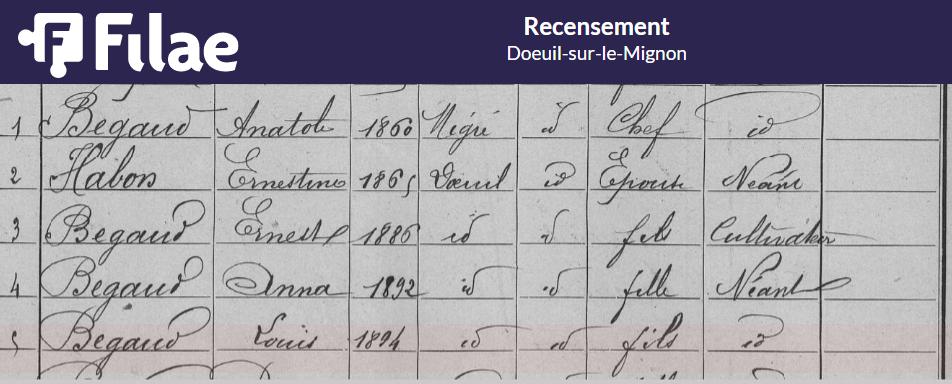 Filae
Recensement
Doeuil-sur-le-Mignon
1 Begaud Anatole 1860 Migré id Chef id
2 Habon Ernestine 1865 Doeuil id Epouse Néant
3 Begaud Ernest 1886 id id fils Cultivateur
4 Begaud Anna 1892 id id fille Néant
5 Begaud Louis 1894 id id fils id